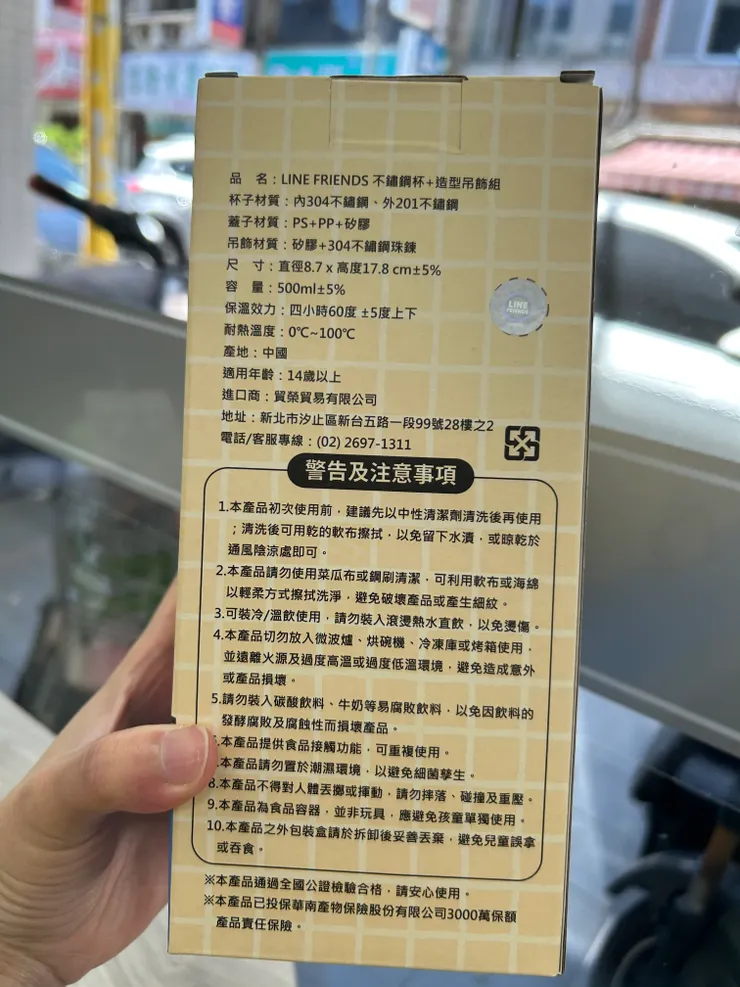 品　名：LINE FRIENDS 不鏽鋼杯+造型吊飾組
杯子材質：內304不鏽鋼、外201不鏽鋼
蓋子材質：PS+PP+矽膠
吊飾材質：矽膠+304不鏽鋼珠鍊
尺　寸：直徑8.7 x 高度17.8 cm±5%
容　量：500ml±5%
保溫效力：四小時60度 ±5度上下
耐熱溫度：0℃~100℃
產地：中國
適用年齡：14歲以上
進口商：貿榮貿易有限公司
地址：新北市汐止區新台五路一段99號28樓之2
電話/客服專線：(02) 2697-1311
LINE
FRIENDS
警告及注意事項
1.本產品初次使用前，建議先以中性清潔劑清洗後再使用
；清洗後可用乾的軟布擦拭，以免留下水漬，或晾乾於
通風陰涼處即可。
2.本產品請勿使用菜瓜布或鋼刷清潔，可利用軟布或海綿
以輕柔方式擦拭洗淨，避免破壞產品或產生細紋。
3.可裝冷/溫飲使用，請勿裝入滾燙熱水直飲，以免燙傷。
4.本產品切勿放入微波爐、烘碗機、冷凍庫或烤箱使用，
並遠離火源及過度高溫或過度低溫環境，避免造成意外
或產品損壞。
5.請勿裝入碳酸飲料、牛奶等易腐敗飲料，以免因飲料的
發酵腐敗及腐蝕性而損壞產品。
.本產品提供食品接觸功能，可重複使用。
.本產品請勿置於潮濕環境，以避免細菌孳生。
8.本產品不得對人體丟擲或揮動，請勿摔落、碰撞及重壓。
9.本產品為食品容器，並非玩具，應避免孩童單獨使用。
10.本產品之外包裝盒請於拆卸後妥善丟棄，避免兒童誤拿
或吞食。
※本產品通過全國公證檢驗合格，請安心使用。
※本產品已投保華南產物保險股份有限公司3000萬保額
產品責任保險。